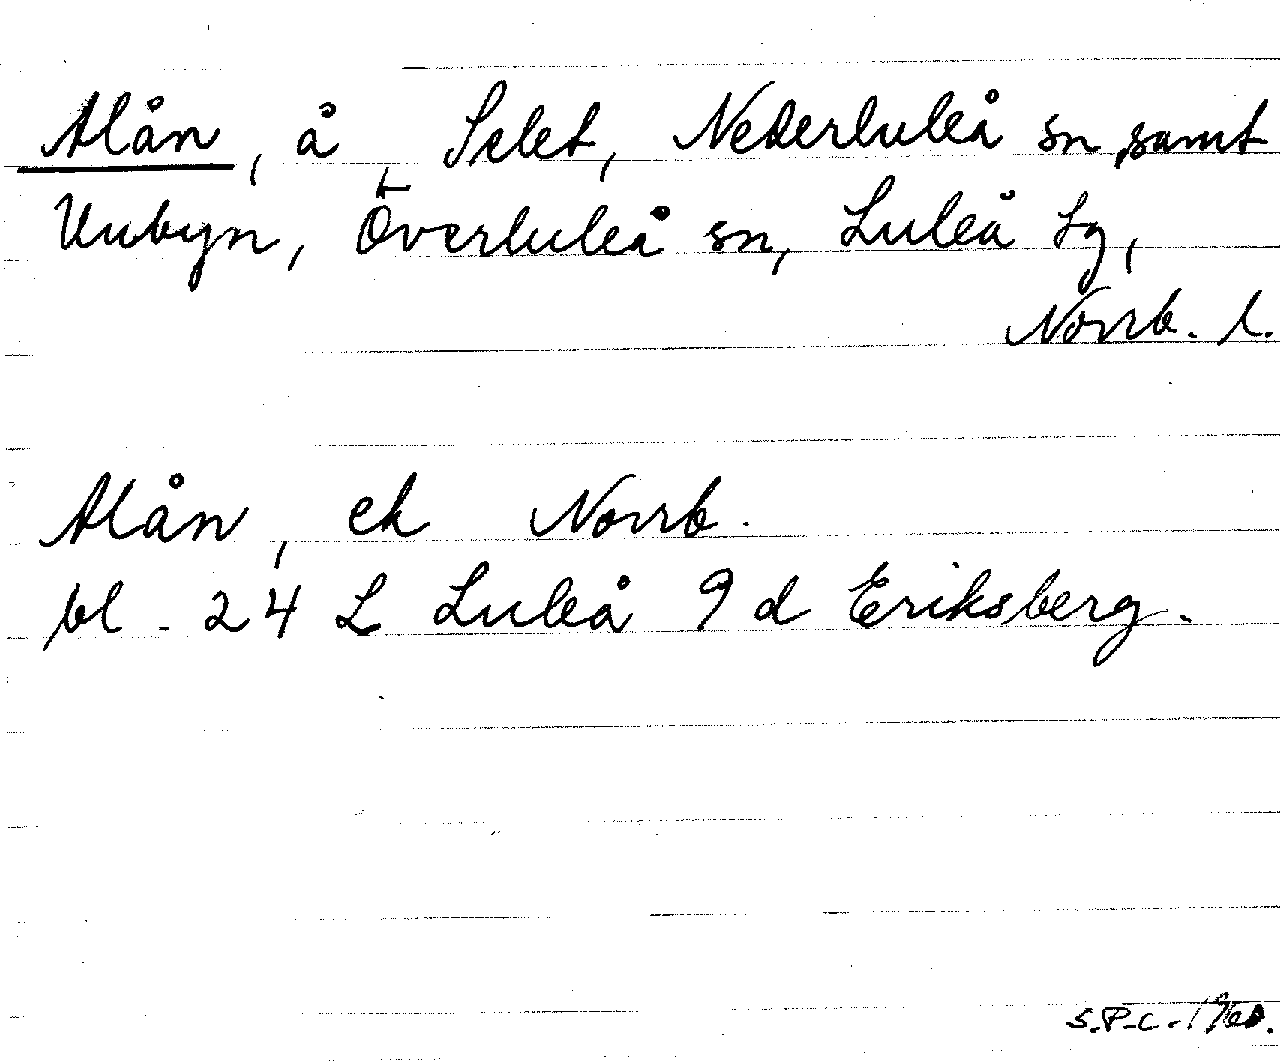 Alån, å, Selet, Nederluleå sn, samt
Unbyn, Överluleå sn, Luleå tg,
Norrb. l.
Alån, ek Norrb.
bl. 24 L Luleå 9 d Eriksberg.
S.P.C.